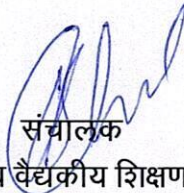 संचालक
वैद्यकीय शिक्षण